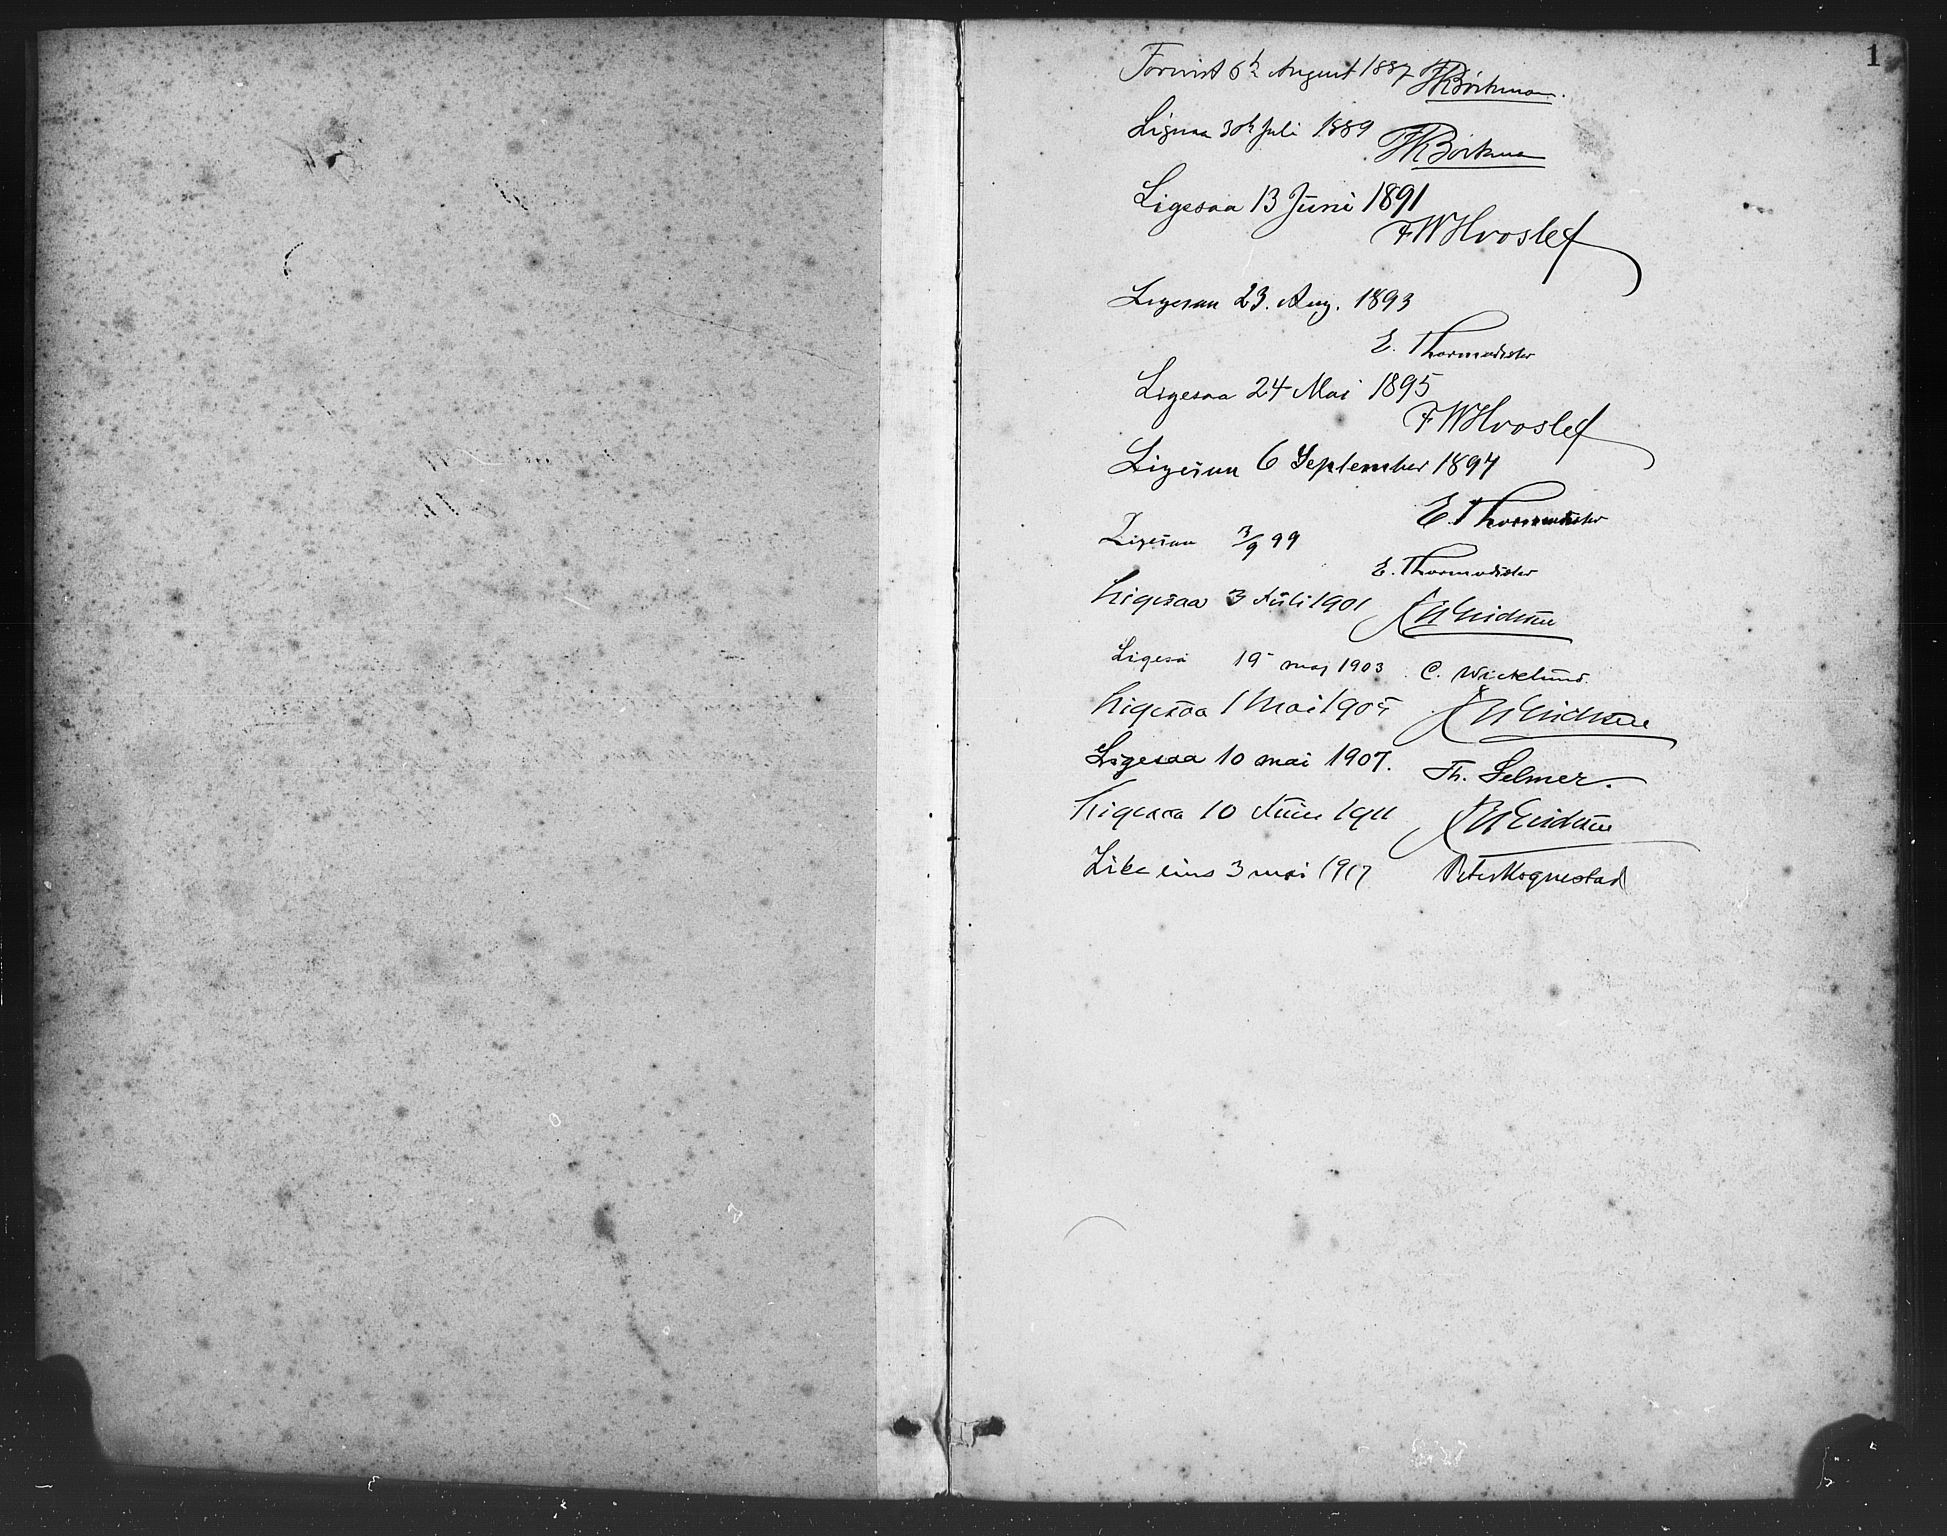 1
Forevist 6te August 1887 JRBörkman.
Ligesaa 30te Juli 1889
JRBörkman
Ligesaa 13 Juni 1891
FWHvoslef
Ligesaa 23. Aug. 1893
E. Thormodsæter
Ligesaa 24 Mai 1895
FWHvoslef
Ligesaa 6 September 1897
E. Thormodsæter
Ligesaa 3/9 99
E. Thormodsæter
Ligesaa 3 Juli 1901
Ligeså 19 maj 1903 C. Wicklund.
Ligesaa 1 Mai 1905
Ligesaa 10 mai 1907. Th. Selmer.
Ligesaa 10 1911
Like eins 3 mai 1917 Peter Hognestad